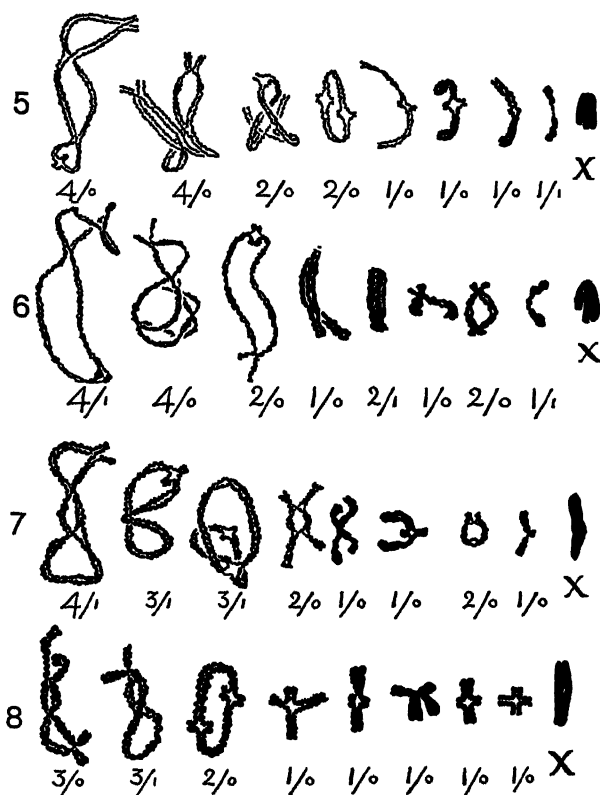 5
X
4/0 4/0 2/0 2/0 1/0 1/0 1/0 1/1
6
X
4/1 4/0 2/0 1/0 2/1 1/0 2/0 1/1
7
X
4/1 3/1 3/1 2/0 1/0 1/0 2/0 1/0
8
X
3/0 3/1 2/0 1/0 1/0 1/0 1/0 1/0